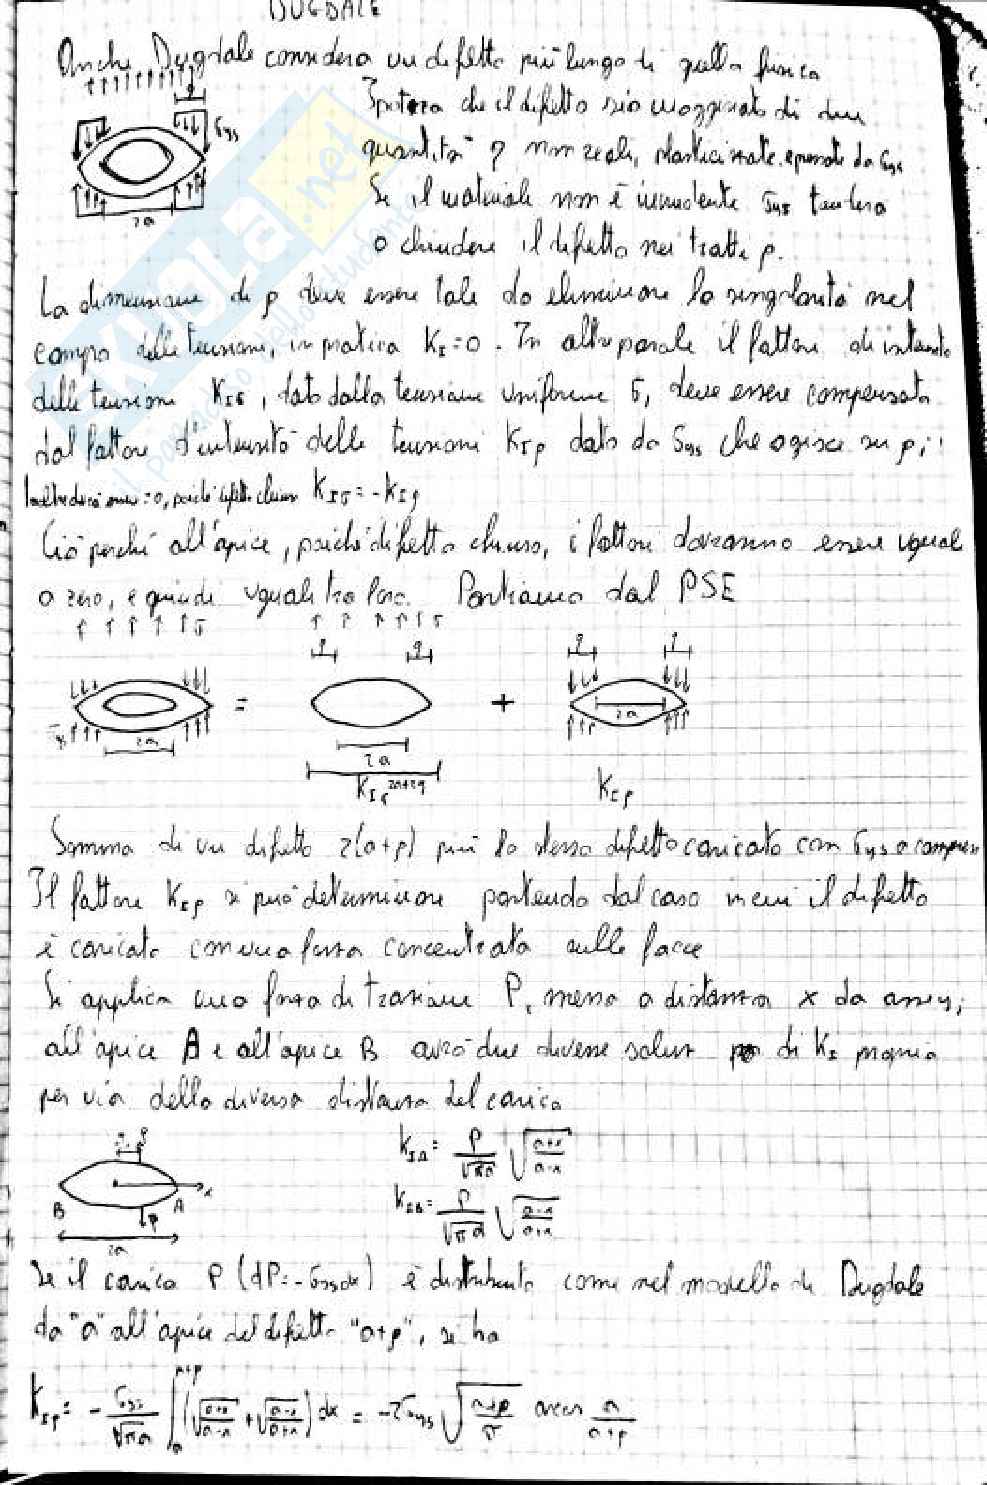 DUGDALE
Anche Dugdale considera un difetto più lungo di quello fisico
Ipotizza che il difetto sia maggiorato di due
quantità ρ non reali, plasticizzate e pressate da σys
Se il materiale non è σys tenderà
a chiudere il difetto nei tratti ρ.
ρ
σys
2a
La dimensione di ρ deve essere tale da eliminare la singolarità nel
campo delle tensioni, in pratica KI=0. In altre parole il fattore di intensità
delle tensioni KIσ, dato dalla tensione uniforme σ, deve essere compensato
dal fattore d'intensità delle tensioni KIρ dato da σys che agisce su ρ;
=0, poiché difetto chiuso KIσ = -KIρ
Ciò perché all'apice, poiché difetto chiuso, i fattori dovranno essere uguali
a zero, e quindi uguali tra loro. Partiamo dal PSE
σ σ
ρ ρ ρ ρ
= +
2a 2a 2a
KIσ 2a+2ρ KIρ
Somma di un difetto 2(a+ρ) più lo stesso difetto caricato con σys a compress
Il fattore KIρ si può determinare partendo dal caso in cui il difetto
è caricato con una forza concentrata sulle facce
Si applica una forza di trazione P, messa a distanza x da
all'apice A e all'apice B avrò due diverse di KI proprio
per via della diversa distanza del carico
P
B A x
P
2a
KIA = P/√πa √(a+x)/(a-x)
KIB = P/√πa √(a-x)/(a+x)
Se il carico P (dP=-σys dx) è distribuito come nel modello di Dugdale
da "a" all'apice del difetto "a+ρ", si ha
KIρ = - σys/√πa ∫a a+ρ (√(a+x)/(a-x) + √(a-x)/(a+x)) dx = -2σys √(a+ρ)/π arcos a/(a+ρ)
KUGLA.net
il paradiso dello studente